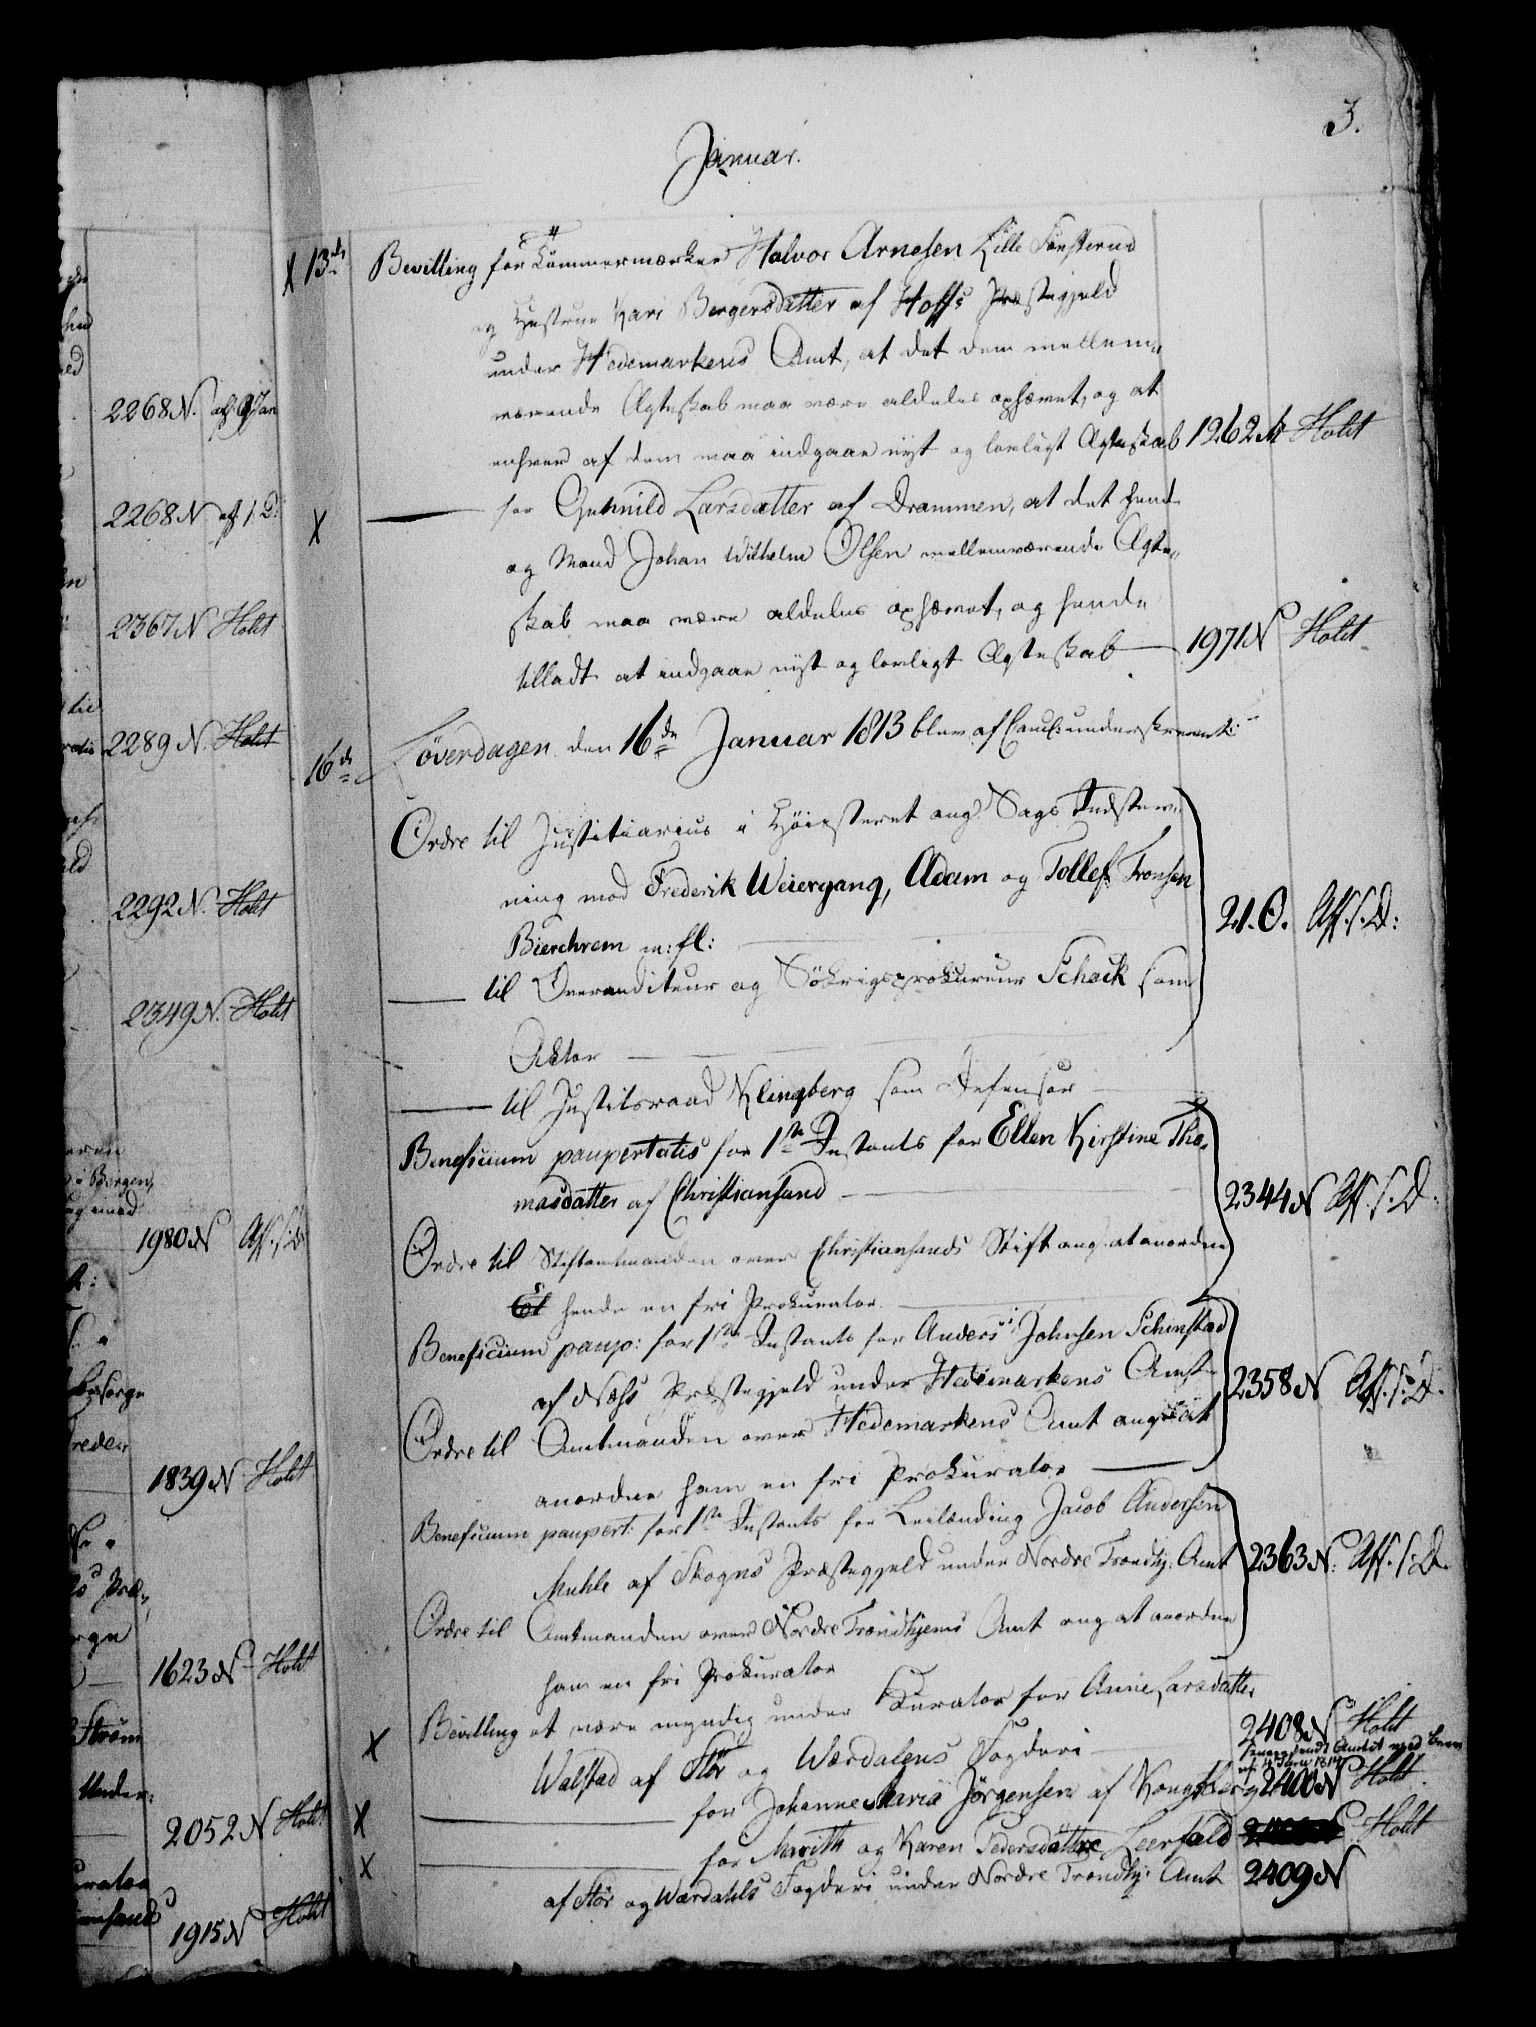 3.
Januar.
X 13de Bevilling for Tømmermærker Halvor Arnesen Lille Fønsterud
og Hustrue Kari Bergersdatter af Hoffs Præstegjeld
under Hedemarkens Amt, at det dem mellem-
værende Ægteskab maa være aldeles ophævet, og at
enhver af dem maa indgaae nyt og lovligt Ægteskab 1262 N Holst
X — for Gunnild Larsdatter af Drammen, at det hende
og Mand Johan Wilhelm Olsen mellemværende Ægte-
skab maa være aldeles ophævet, og hende
tilladt at indgaae nyt og lovligt Ægteskab — 1971 N Holst
16de Løverdagen den 16de Januar 1813 blev af Canc: underskrevet:
Ordre til Justitiarius i Høiesteret ang: Sags Indstev-
ning mod Frederik Weiergang, Adam og Tollef Tronsen
Bierchrem m: fl: 21. O. Aff. s. D:
— til Overauditeur og Søkrigsprokureur Schack som
Aktor —
— til Justitsraad Klingberg som Defensor —
Beneficium paupertatis for 1ste Instants for Ellen Kirstine Tho-
masdatter af Christiansund — 2344 N Aff. s. D.
Ordre til Stiftamtmanden over Christiansands Stift ang. at anordne
hende en fri Prokurator —
Beneficium paup: for 1ste Instants for Anders Johnsen Schinstad
af Næss Præstegjeld under Hedemarkens Amt 2358 N Aff. s. D.
Ordre til Amtmanden over Hedemarkens Amt ang: at
anordne ham en fri Prokurator —
Beneficium paupert: for 1ste Instants for Leilænding Jacob Andersen
Muhle af Skogns Præstegjeld under Nordre Trondhj: Amt 2363 N. Aff. s. D.
Ordre til Amtmanden over Nordre Trondhjems Amt ang at anordne
ham en fri Prokurator
X Bevilling at være myndig under Kurator for Anne Larsdatter
Walstad af Stør og Wærdalens Fogderi — 2408 N Holst
X — for Johanne Maria Jörgensen af Kongsberg 2400 N Holst.
X — for Marith og Karen Pedersdøttre Leerfald Holst
af Stør og Wærdahls Fogderi under Nordre Trondhj: Amt 2409 N
2268 N. af 9 Jan
2268 N af s. D:
2367 N Holst
2289 N. Holst
2292 N. Holst
2349 N. Holst
i Bergen,
1980 N Aff. s. D
besørge
1839 N Holst
1623 N Holst
Strøm
Under:
2052 N Holst
1915 N Holst